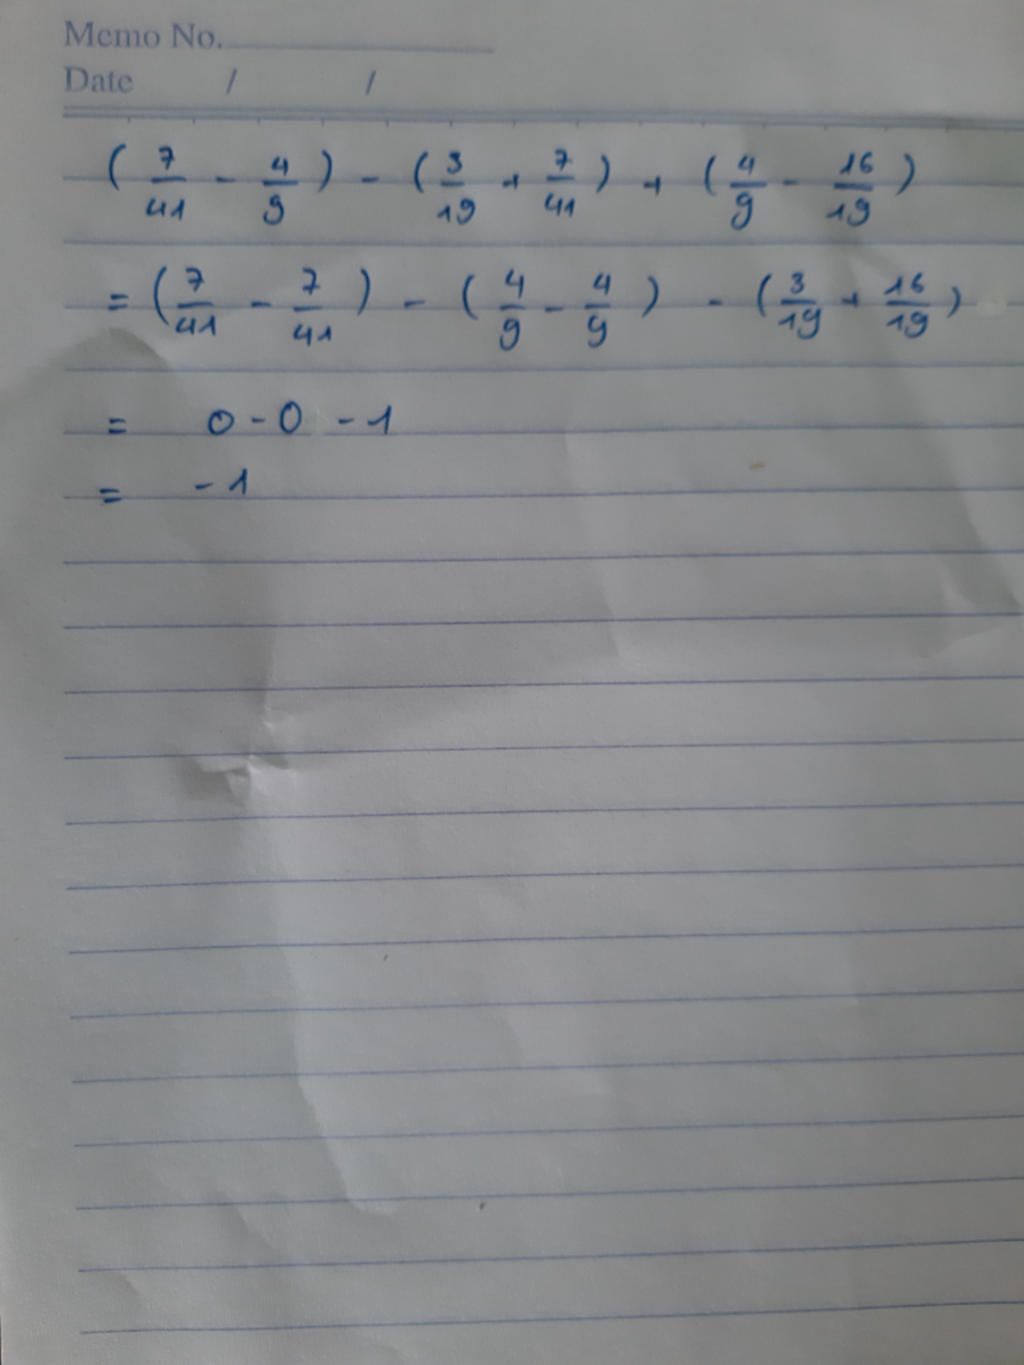 Memo No.
Date / /
( 7/41 - 4/9 ) - ( 3/19 + 7/41 ) + ( 4/9 - 16/19 )
= ( 7/41 - 7/41 ) - ( 4/9 - 4/9 ) - ( 3/19 + 16/19 )
= 0 - 0 - 1
= - 1